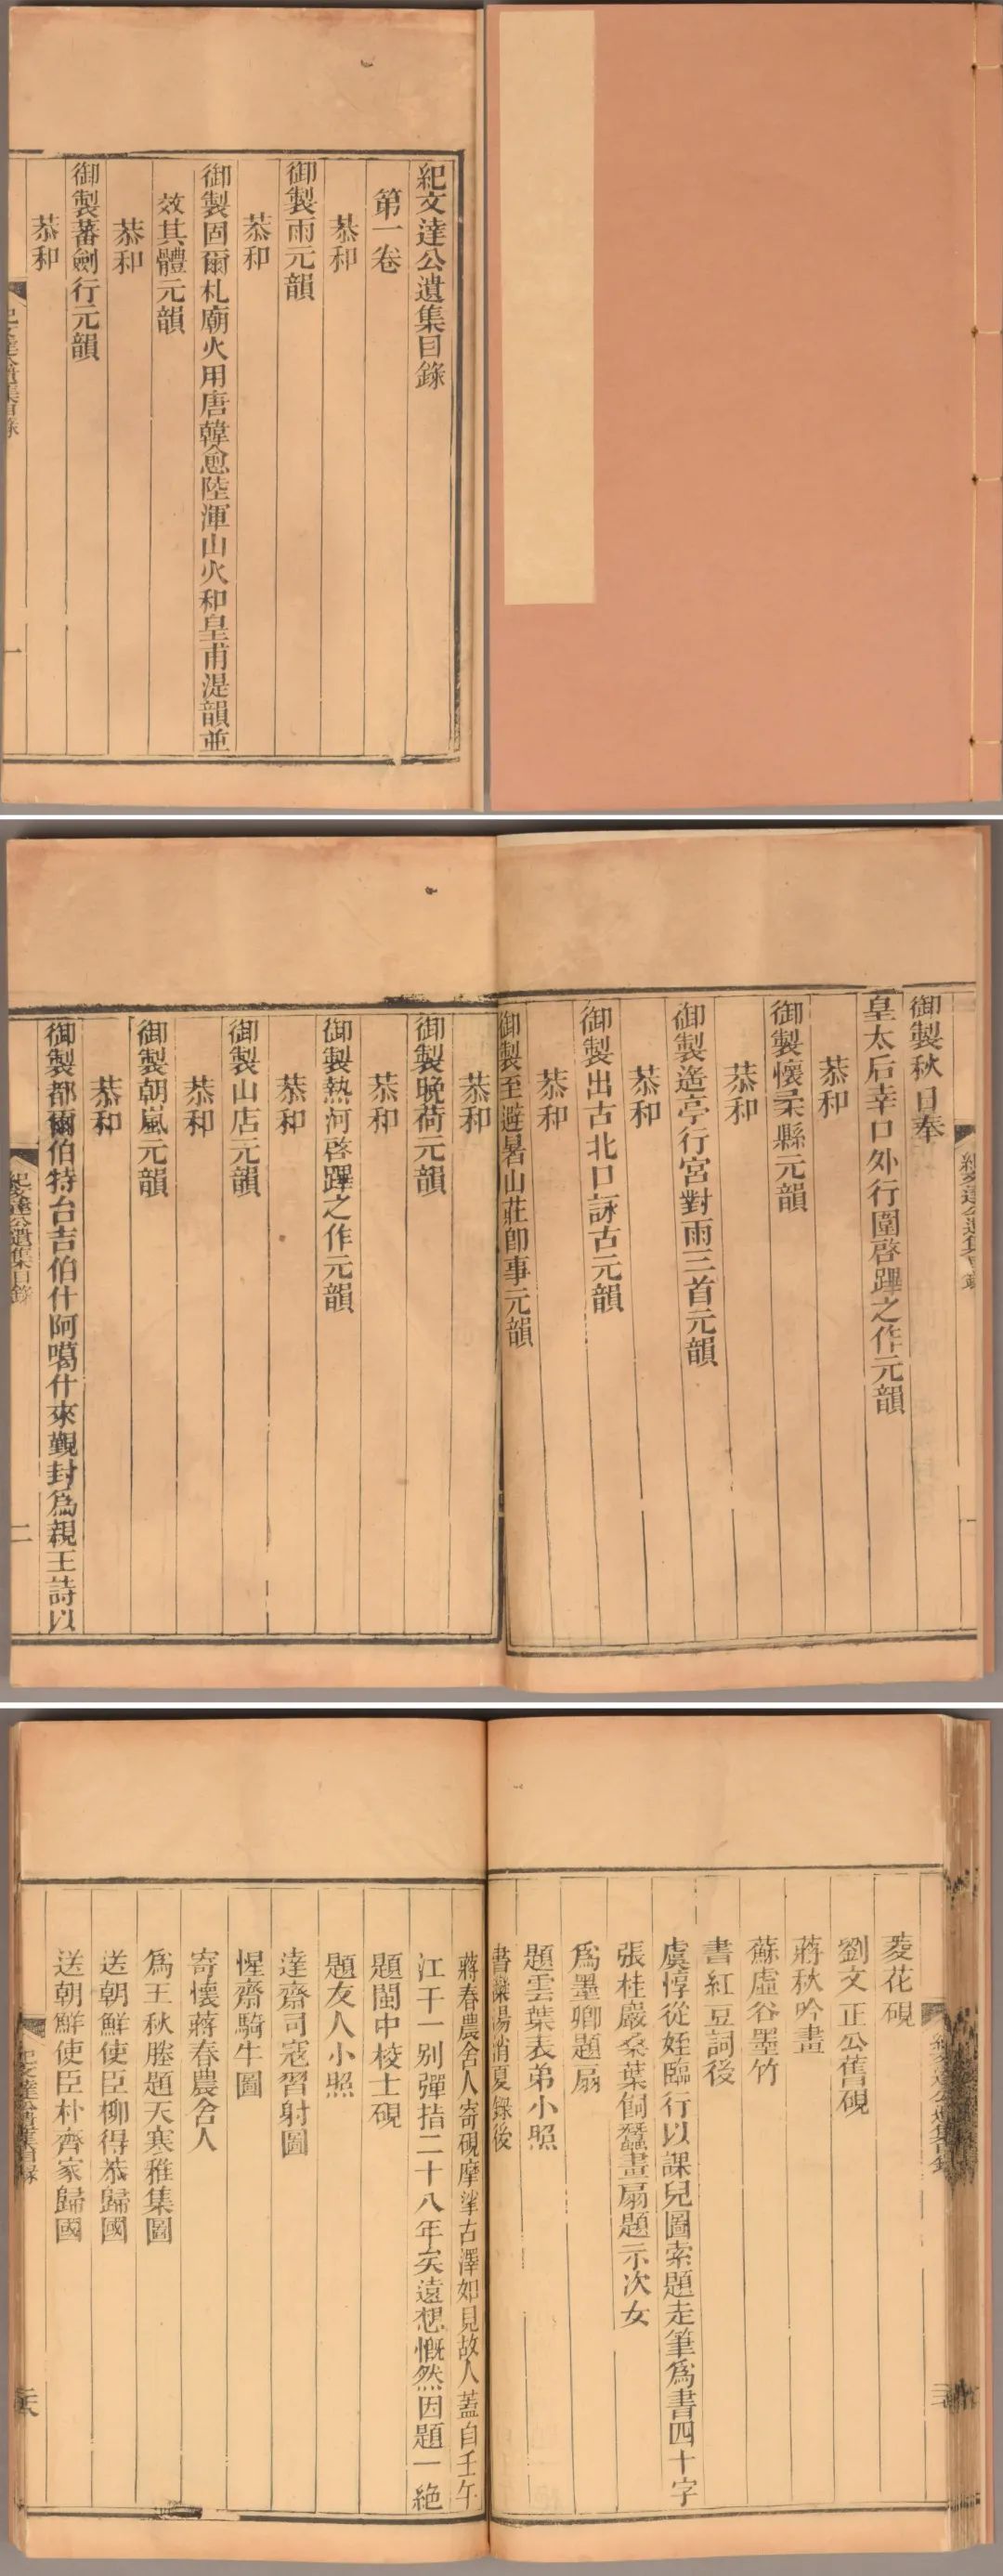 紀文達公遺集目錄
第一卷
恭和
御製雨元韻
恭和
御製固爾札廟火用唐韓愈陸渾山火和皇甫湜韻並
效其體元韻
恭和
御製蕃劍行元韻
恭和
一
御製秋日奉
皇太后幸口外行圍啓蹕之作元韻
恭和
御製懷柔縣元韻
恭和
御製遙亭行宮對雨三首元韻
恭和
御製出古北口詠古元韻
恭和
御製至避暑山莊卽事元韻
恭和
御製晚荷元韻
恭和
御製熱河啓蹕之作元韻
恭和
御製山店元韻
恭和
御製朝嵐元韻
恭和
御製都爾伯特台吉伯什阿噶什來覲封爲親王詩以
紀文達公遺集目錄
二
菱花硯
劉文正公舊硯
蔣秋吟畫
蘇虛谷墨竹
書紅豆詞後
虞惇從姪臨行以課兒圖索題走筆爲書四十字
張桂巖桑葉飼蠶畫扇題示次女
爲墨卿題扇
題雲葉表弟小照
書灤陽消夏録後
蔣春農舍人寄硯摩挲古澤如見故人蓋自壬午
江干一別彈指二十八年矣遠想慨然因題一絕
題閩中校士硯
題友人小照
達齋司寇習射圖
惺齋騎牛圖
寄懷蔣春農舍人
爲王秋塍題天寒雅集圖
送朝鮮使臣柳得恭歸國
送朝鮮使臣朴齊家歸國